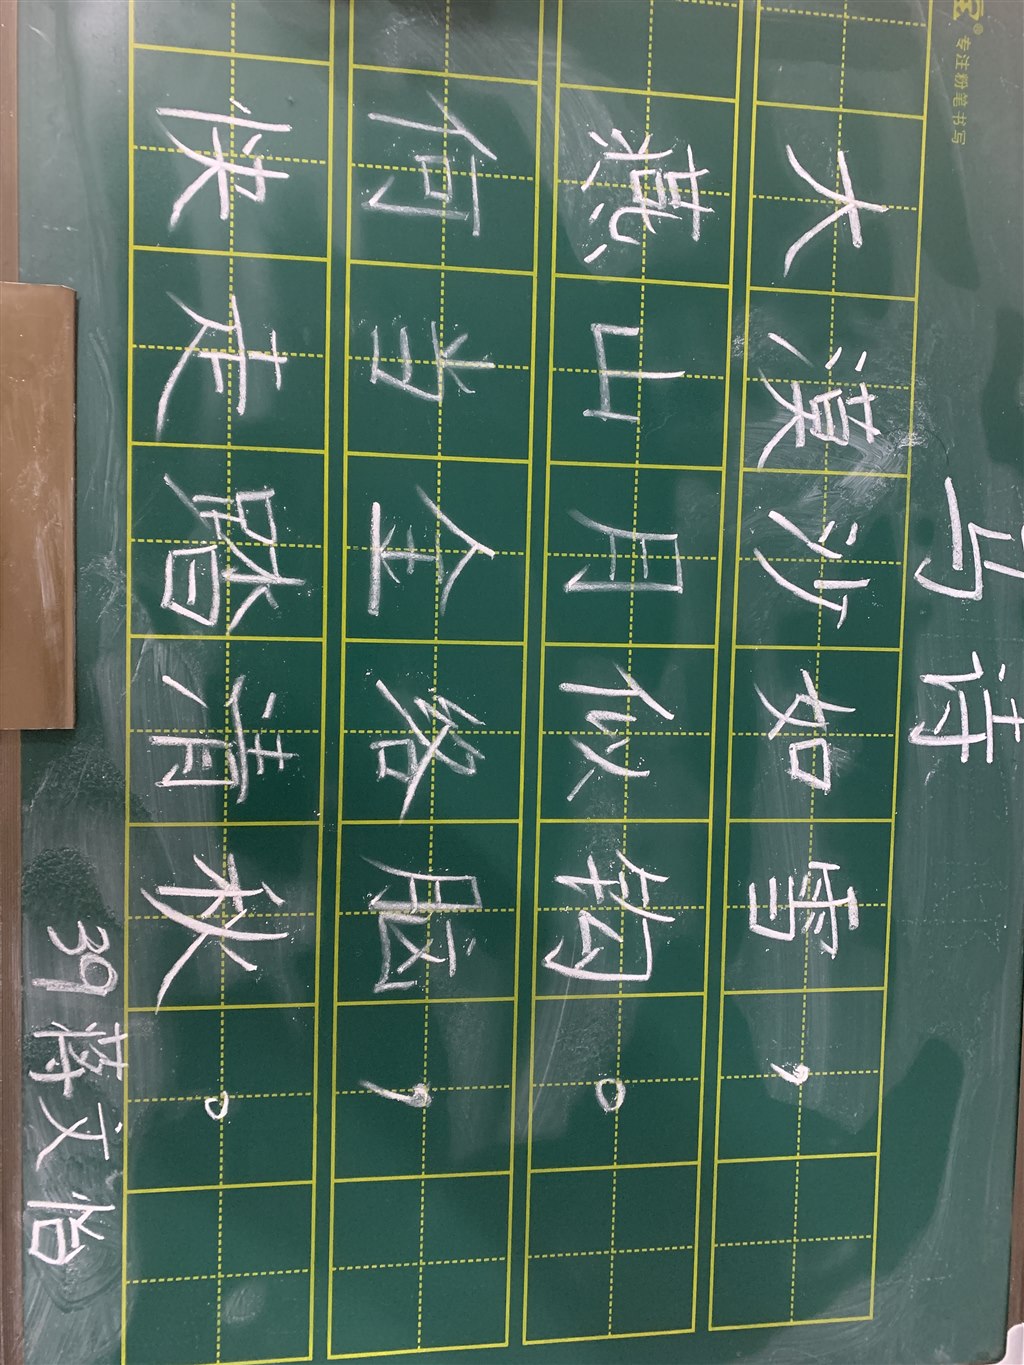 专注粉笔书写
马诗
大漠沙如雪，
燕山月似钩。
何当金络脑，
快走踏清秋。
39 蒋文怡